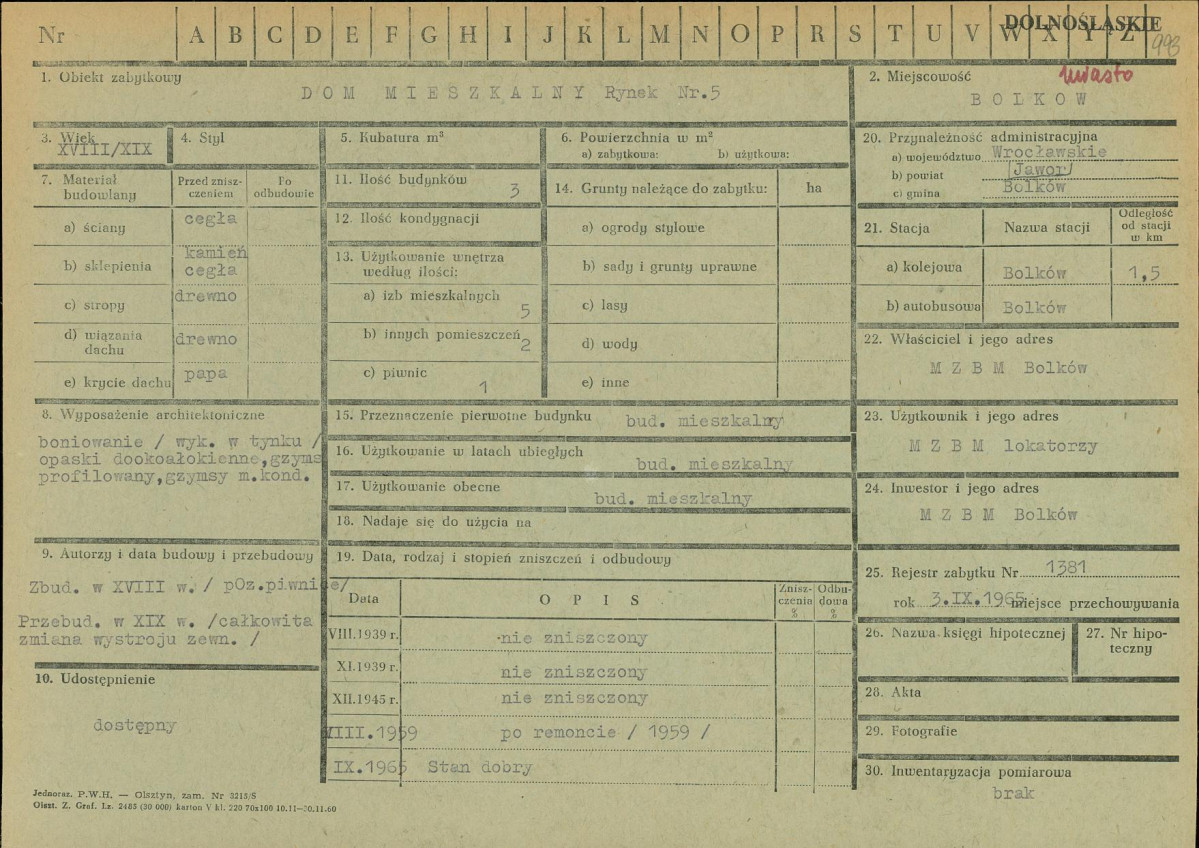 Nr A B C D E F G H I J K L M N O P R S T U V W X Y Z DOLNOŚLĄSKIE
993
1. Obiekt zabytkowy
DOM MIESZKALNY Rynek Nr.5
2. Miejscowość
miasto
BOLKOW
3. Wiek
XVIII/XIX
4. Styl
5. Kubatura m³
6. Powierzchnia w m²
a) zabytkowa: b) użytkowa:
7. Materiał budowlany
Przed zniszczeniem
Po odbudowie
a) ściany cegła
b) sklepienia kamień
cegła
c) stropy drewno
d) wiązania dachu drewno
e) krycie dachu papa
8. Wyposażenie architektoniczne
boniowanie / wyk. w tynku /
opaski dookoałokienne,gzyms
profilowany,gzymsy m.kond.
9. Autorzy i data budowy i przebudowy
Zbud. w XVIII w. / pOz.piwnice/
Przebud. w XIX w. /całkowita
zmiana wystroju zewn. /
10. Udostępnienie
dostępny
11. Ilość budynków 3
12. Ilość kondygnacji
13. Użytkowanie wnętrza
według ilości:
a) izb mieszkalnych 5
b) innych pomieszczeń 2
c) piwnic 1
14. Grunty należące do zabytku: ha
a) ogrody stylowe
b) sady i grunty uprawne
c) lasy
d) wody
e) inne
15. Przeznaczenie pierwotne budynku bud. mieszkalny
16. Użytkowanie w latach ubiegłych bud. mieszkalny
17. Użytkowanie obecne bud. mieszkalny
18. Nadaje się do użycia na
19. Data, rodzaj i stopień zniszczeń i odbudowy
Data OPIS Zniszczenia % Odbudowa %
VIII.1939 r. nie zniszczony
XI.1939 r. nie zniszczony
XII.1945 r. nie zniszczony
VIII.1959 po remoncie / 1959 /
IX.1965 Stan dobry
20. Przynależność administracyjna
a) województwo Wrocławskie
b) powiat Jawor
c) gmina Bolków
21. Stacja Nazwa stacji Odległość od stacji w km
a) kolejowa Bolków 1,5
b) autobusowa Bolków
22. Właściciel i jego adres
M Z B M Bolków
23. Użytkownik i jego adres
M Z B M lokatorzy
24. Inwestor i jego adres
M Z B M Bolków
25. Rejestr zabytku Nr 1381
rok 3.IX.1965 miejsce przechowywania
26. Nazwa księgi hipotecznej
27. Nr hipoteczny
28. Akta
29. Fotografie
30. Inwentaryzacja pomiarowa
brak
Jednoraz. P.W.H. — Olsztyn, zam. Nr 3215/S
Olszt. Z. Graf. Lz. 2485 (30 000) karton V kl. 220 70x100 10.11—30.11.60